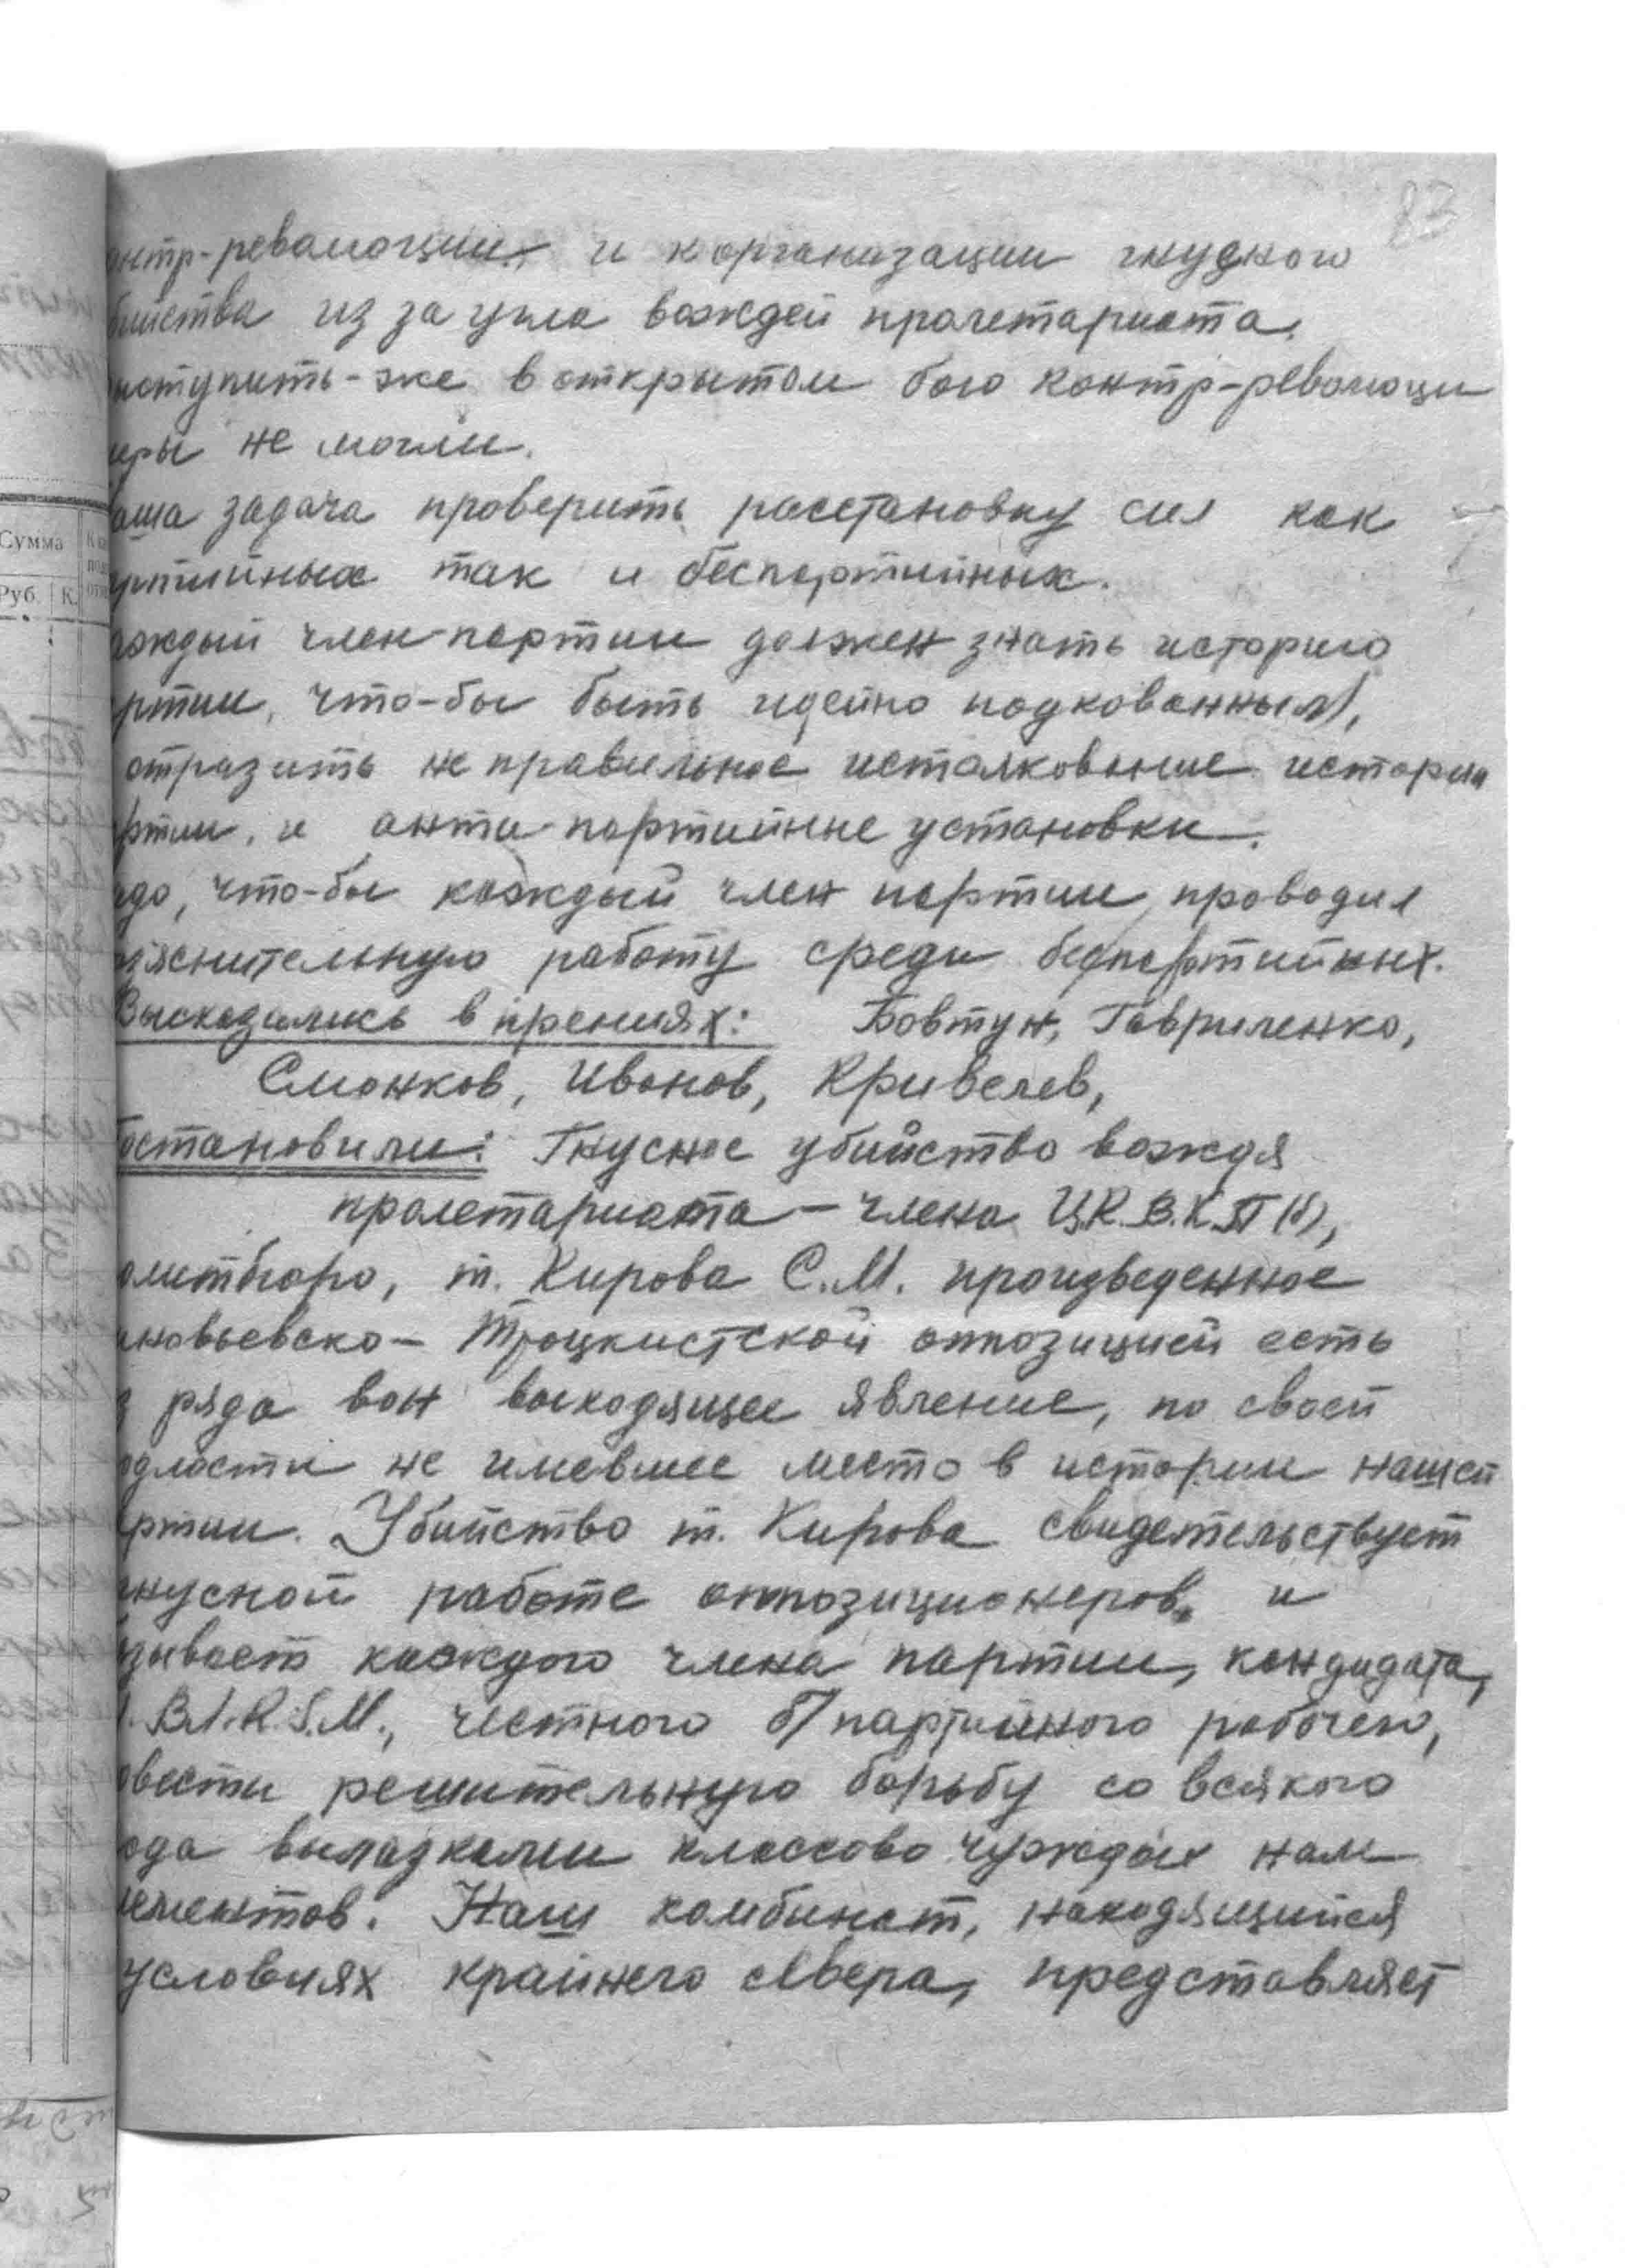 83
онтр-революции, и к организации гнусного
бийства из за угла вождей пролетариата.
ыступить-же в открытом бою контр-революци
неры не могли.
аша задача проверить расстановку сил как
артийных так и беспартийных.
аждый член партии должен знать историю
артии, что-бы быть идейно подкованным,
отразить не правильное истолкование истории
артии, и анти-партийные установки.
адо, что-бы каждый член партии проводил
з'яснительную работу среди беспартийных.
Высказались в прениях: Бовтун, Гавриленко,
Смонков, Иванов, Кривелев,
Постановили: Гнусное убийство вождя
пролетариата – члена Ц.К. В.К.П(б),
олитбюро, т. Кирова С.М. произведенное
иновьевско – Троцкистской оппозицией есть
з ряда вон выходящее явление, по своей
одлости не имевшее место в истории нашей
артии. Убийство т. Кирова свидетельствует
гнусной работе оппозиционеров и
зывает каждого члена партии, кандидата,
В.Л.К.S.М., честного б/партийного рабочего,
овести решительную борьбу со всякого
ода вылазками классово чуждых нам
лементов. Наш комбинат, находящийся
условиях крайнего севера, представляет
Сумма
Руб. К.